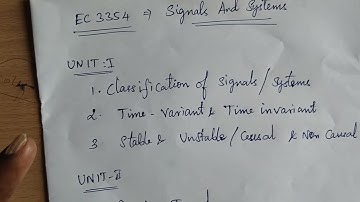 EC 3354 ⇒ Signals And Systems
UNIT:I
1. Classification of Signals/Systems
2. Time-Variant & Time invariant
3. Stable & Unstable/Causal & Non Causal
UNIT-II